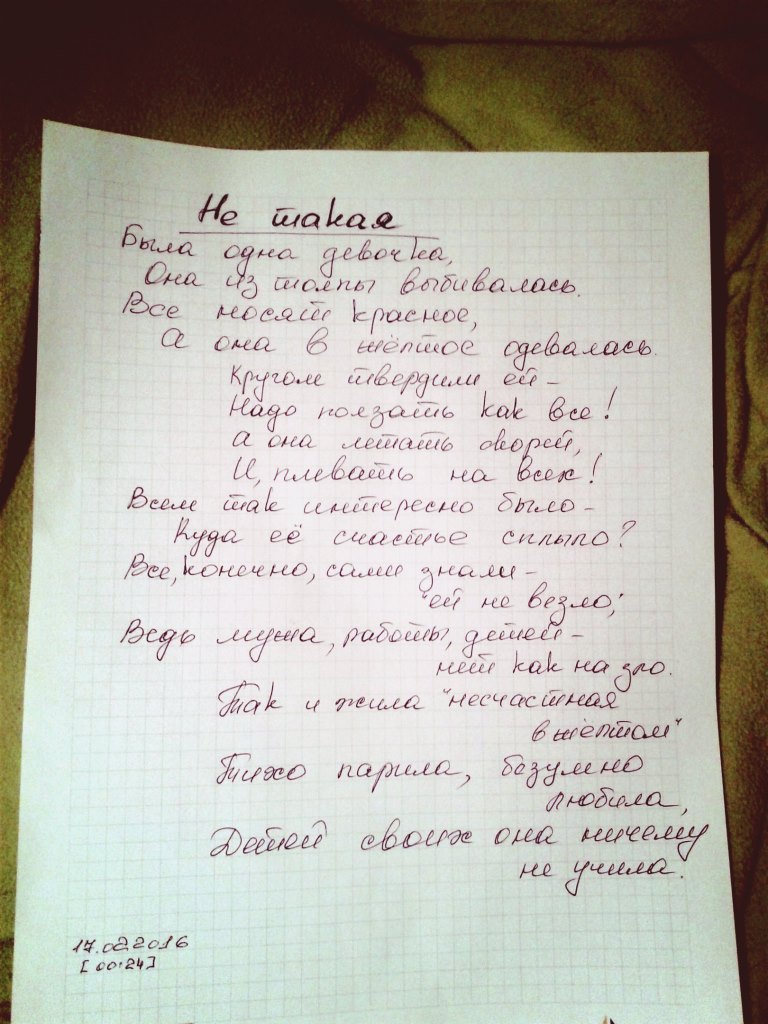 Не такая
Была одна девочка,
Она из толпы выбивалась.
Все носят красное,
А она в жёлтое одевалась.
Кругом твердили ей –
Надо ползать как все!
а она летать
И, плевать на всех!
Всем так интересно было –
Куда её счастье сплыло?
Все, конечно, сами знали –
"ей не везло,"
Ведь мужа, работы, детей –
нет как на зло.
Так и жила "несчастная
в жёлтом"
Тихо парила, безумно
любила,
Детей своих она ничему
не учила.
17.02.2016
[00:24]